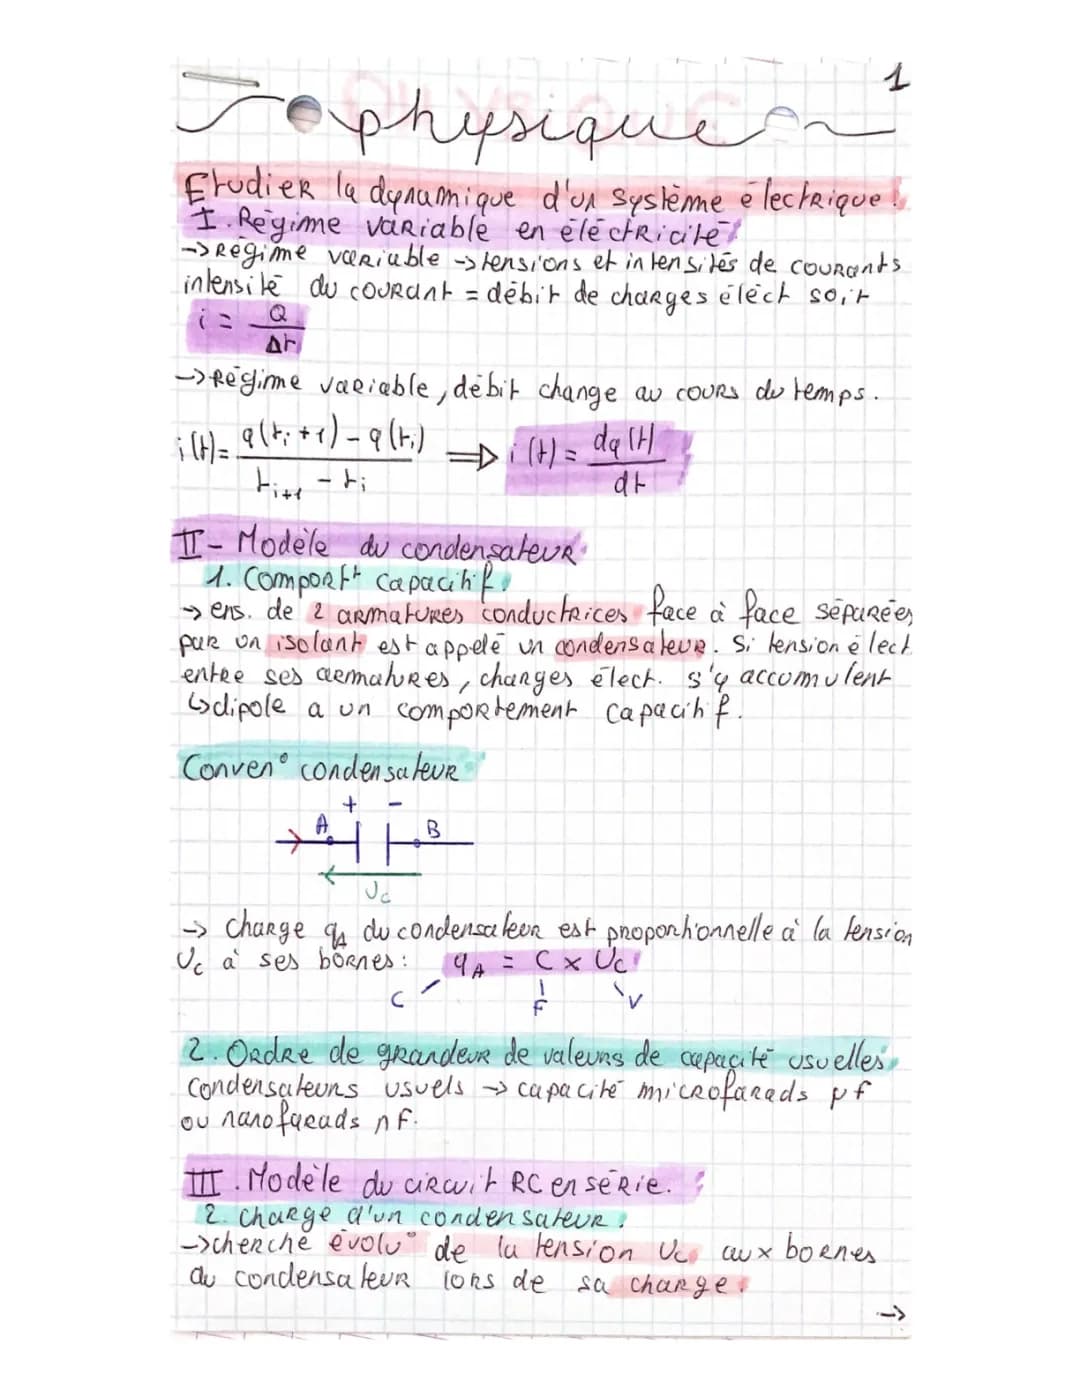 1
physique
Etudier la dynamique d'un système électrique.
I. Régime variable en éléctricité
->Régime variable -> tensions et intensités de courants
intensité du courant = débit de charges éléct soit
i = Q/Δt
->Régime variable, débit change au cours du temps.
i(t) = q(ti+1) - q(ti) / ti+1 - ti ⟹ i(t) = dq(t)/dt
II- Modèle du condensateur
1. Comportt capacitif.
-> ens. de 2 armatures conductrices face à face séparées
par un isolant est appelé un condensateur. Si tension élect
entre ses armatures, charges élect. s'y accumulent
↳dipole a un comportement capacitif.
Conven° condensateur
+ -
A B
Uc
-> charge qA du condensateur est proportionnelle à la tension
Uc à ses bornes: qA = C x Uc
C F V
2. Ordre de grandeur de valeurs de capacité usuelles
condensateurs usuels -> capacité microfarads μf
ou nanofarads nF.
III. Modèle du circuit RC en série.
2. charge d'un condensateur.
->cherche évolu° de la tension Uc aux bornes
du condensateur lors de sa charge.
->